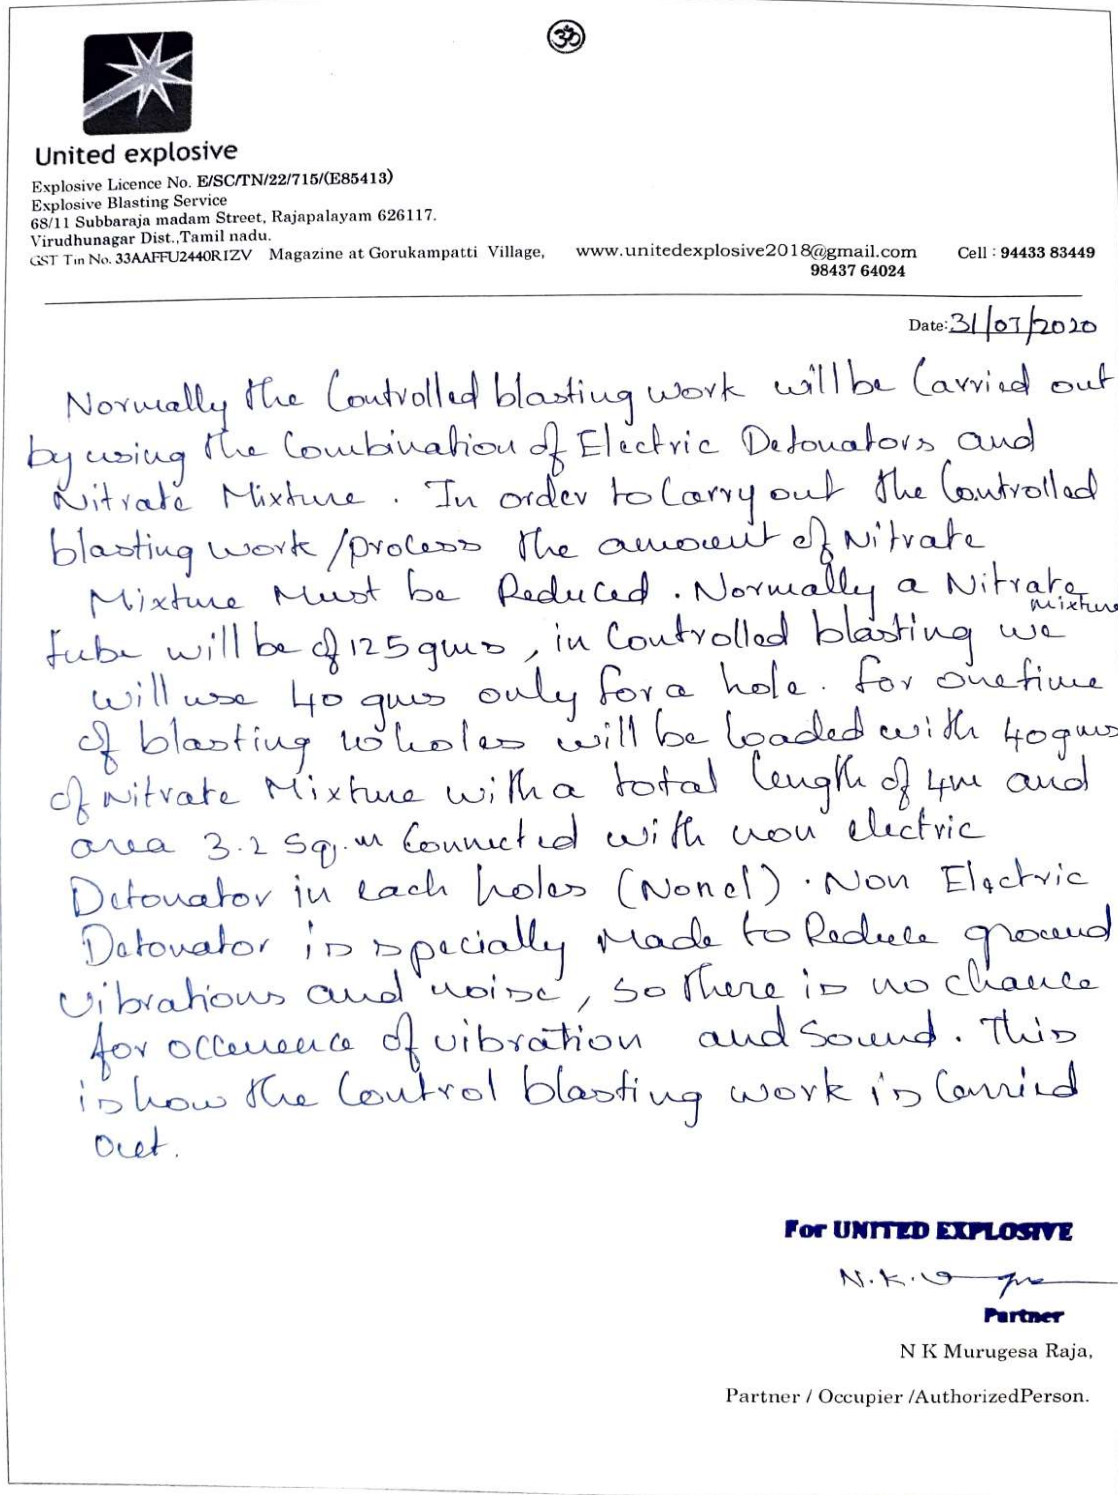 ॐ
United explosive
Explosive Licence No. E/SC/TN/22/715/(E85413)
Explosive Blasting Service
68/11 Subbaraja madam Street, Rajapalayam 626117.
Virudhunagar Dist.,Tamil nadu.
GST Tin No. 33AAFFU2440R1ZV Magazine at Gorukampatti Village, www.unitedexplosive2018@gmail.com Cell : 94433 83449
98437 64024
Date: 31/07/2020
Normally the Controlled blasting work will be Carried out
by using the Combination of Electric Detonators and
Nitrate Mixture. In order to Carry out the Controlled
blasting work/process the amount of Nitrate
Mixture Must be Reduced. Normally a Nitrate Mixture
tube will be of 125 gms, in Controlled blasting we
will use 40 gms only for a hole. For one time
of blasting 10 holes will be loaded with 40 gms
of Nitrate Mixture with a total length of 4m and
area 3.2 Sq.m Connected with non electric
Detonator in each holes (Nonel). Non Electric
Detonator is specially Made to Reduce ground
vibrations and noise, so there is no chance
for occurence of vibration and Sound. This
is how the Control blasting work is Carried
out.
For UNITED EXPLOSIVE
N.K.
Partner
N K Murugesa Raja,
Partner / Occupier /AuthorizedPerson.